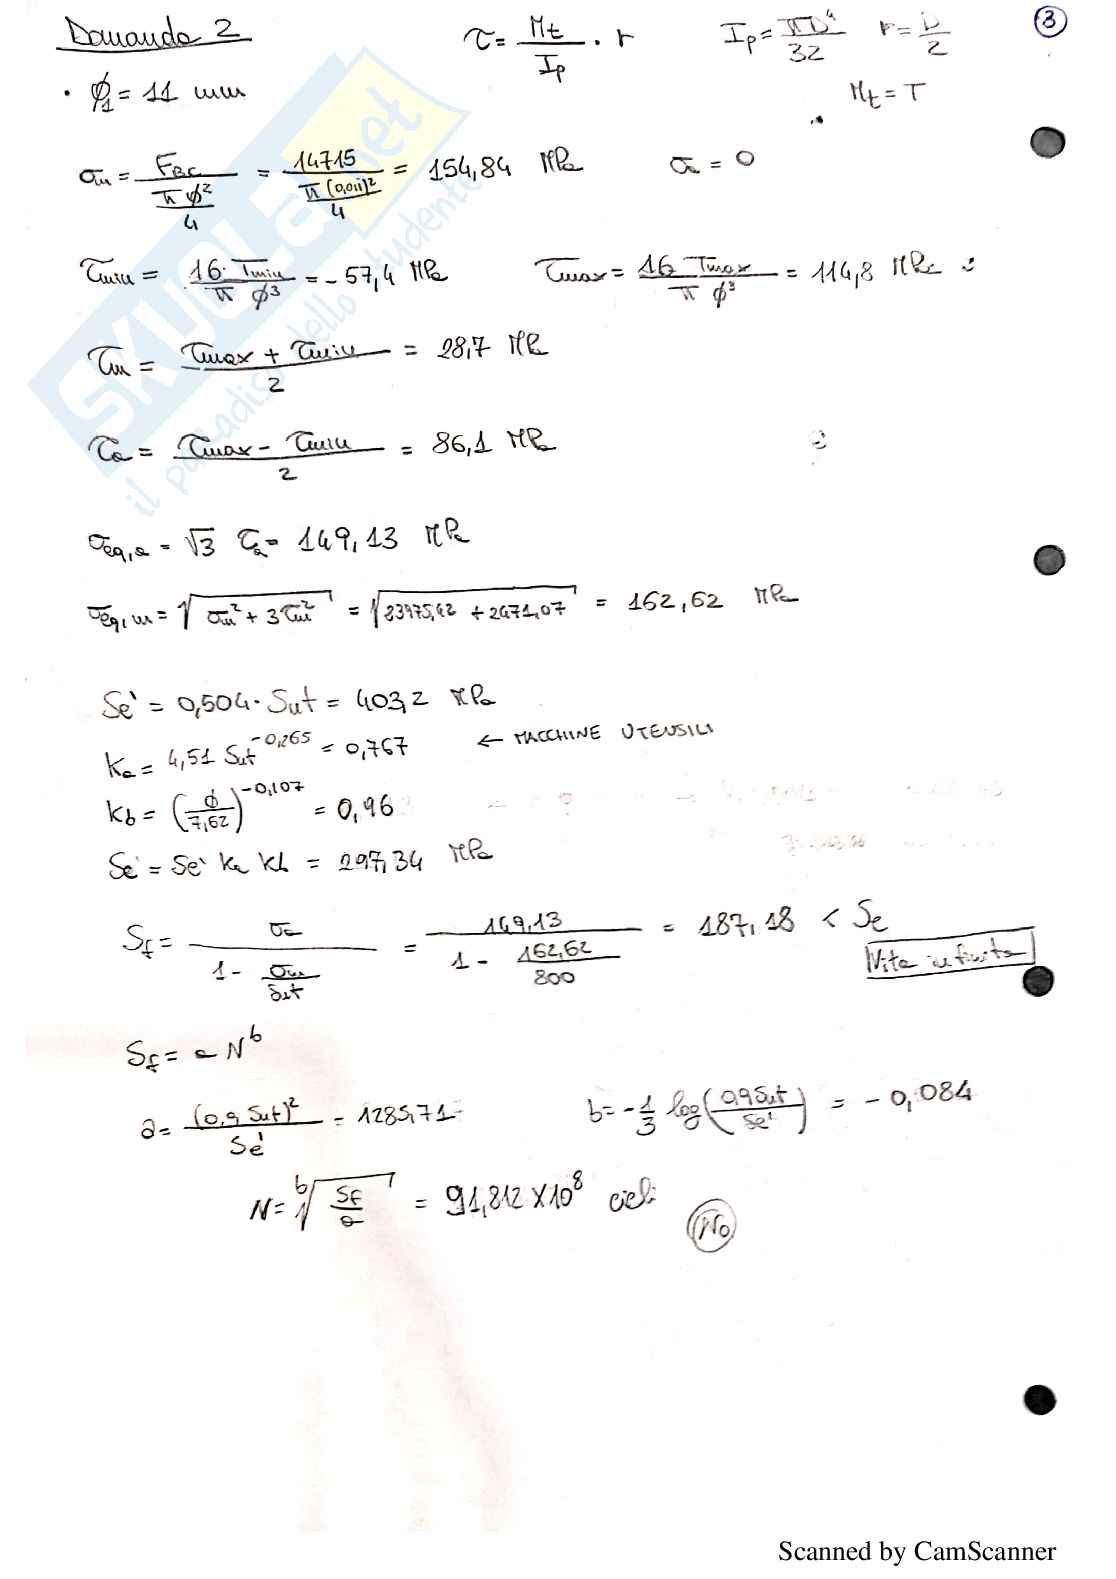 Domanda 2
τ = Mt/Ip · r
Ip = πD⁴/32
r = D/2
3
• ϕ₁ = 11 mm
Mt = T
σm = F_BC / (πϕ²/4) = 14715 / (π(0,011)²/4) = 154,84 MPa
σa = 0
τmin = 16·Tmin / πϕ³ = -57,4 MPa
τmax = 16 Tmax / πϕ³ = 114,8 MPa
τm = (τmax + τmin)/2 = 28,7 MPa
τa = (τmax - τmin)/2 = 86,1 MPa
σeq,a = √3 τa = 149,13 MPa
σeq,m = √(σm² + 3τm²) = √(23975,42 + 2471,07) = 162,62 MPa
Se' = 0,504 · Sut = 403,2 MPa
ka = 4,51 Sut^-0,265 = 0,767 ← MACCHINE UTENSILI
kb = (ϕ/7,62)^-0,107 = 0,96
Se = Se' ka kb = 297,34 MPa
Sf = σa / (1 - σm/Sut) = 149,13 / (1 - 162,62/800) = 187,18 < Se
Vita infinita
Sf = a N^b
a = (0,9 Sut)² / Se' = 1285,71
b = -1/3 log(0,9 Sut / Se') = -0,084
N = ᵇ√(Sf/a) = 91,812 × 10⁸ cicli
No
SKUOLA.net
il paradiso dello studente
Scanned by CamScanner